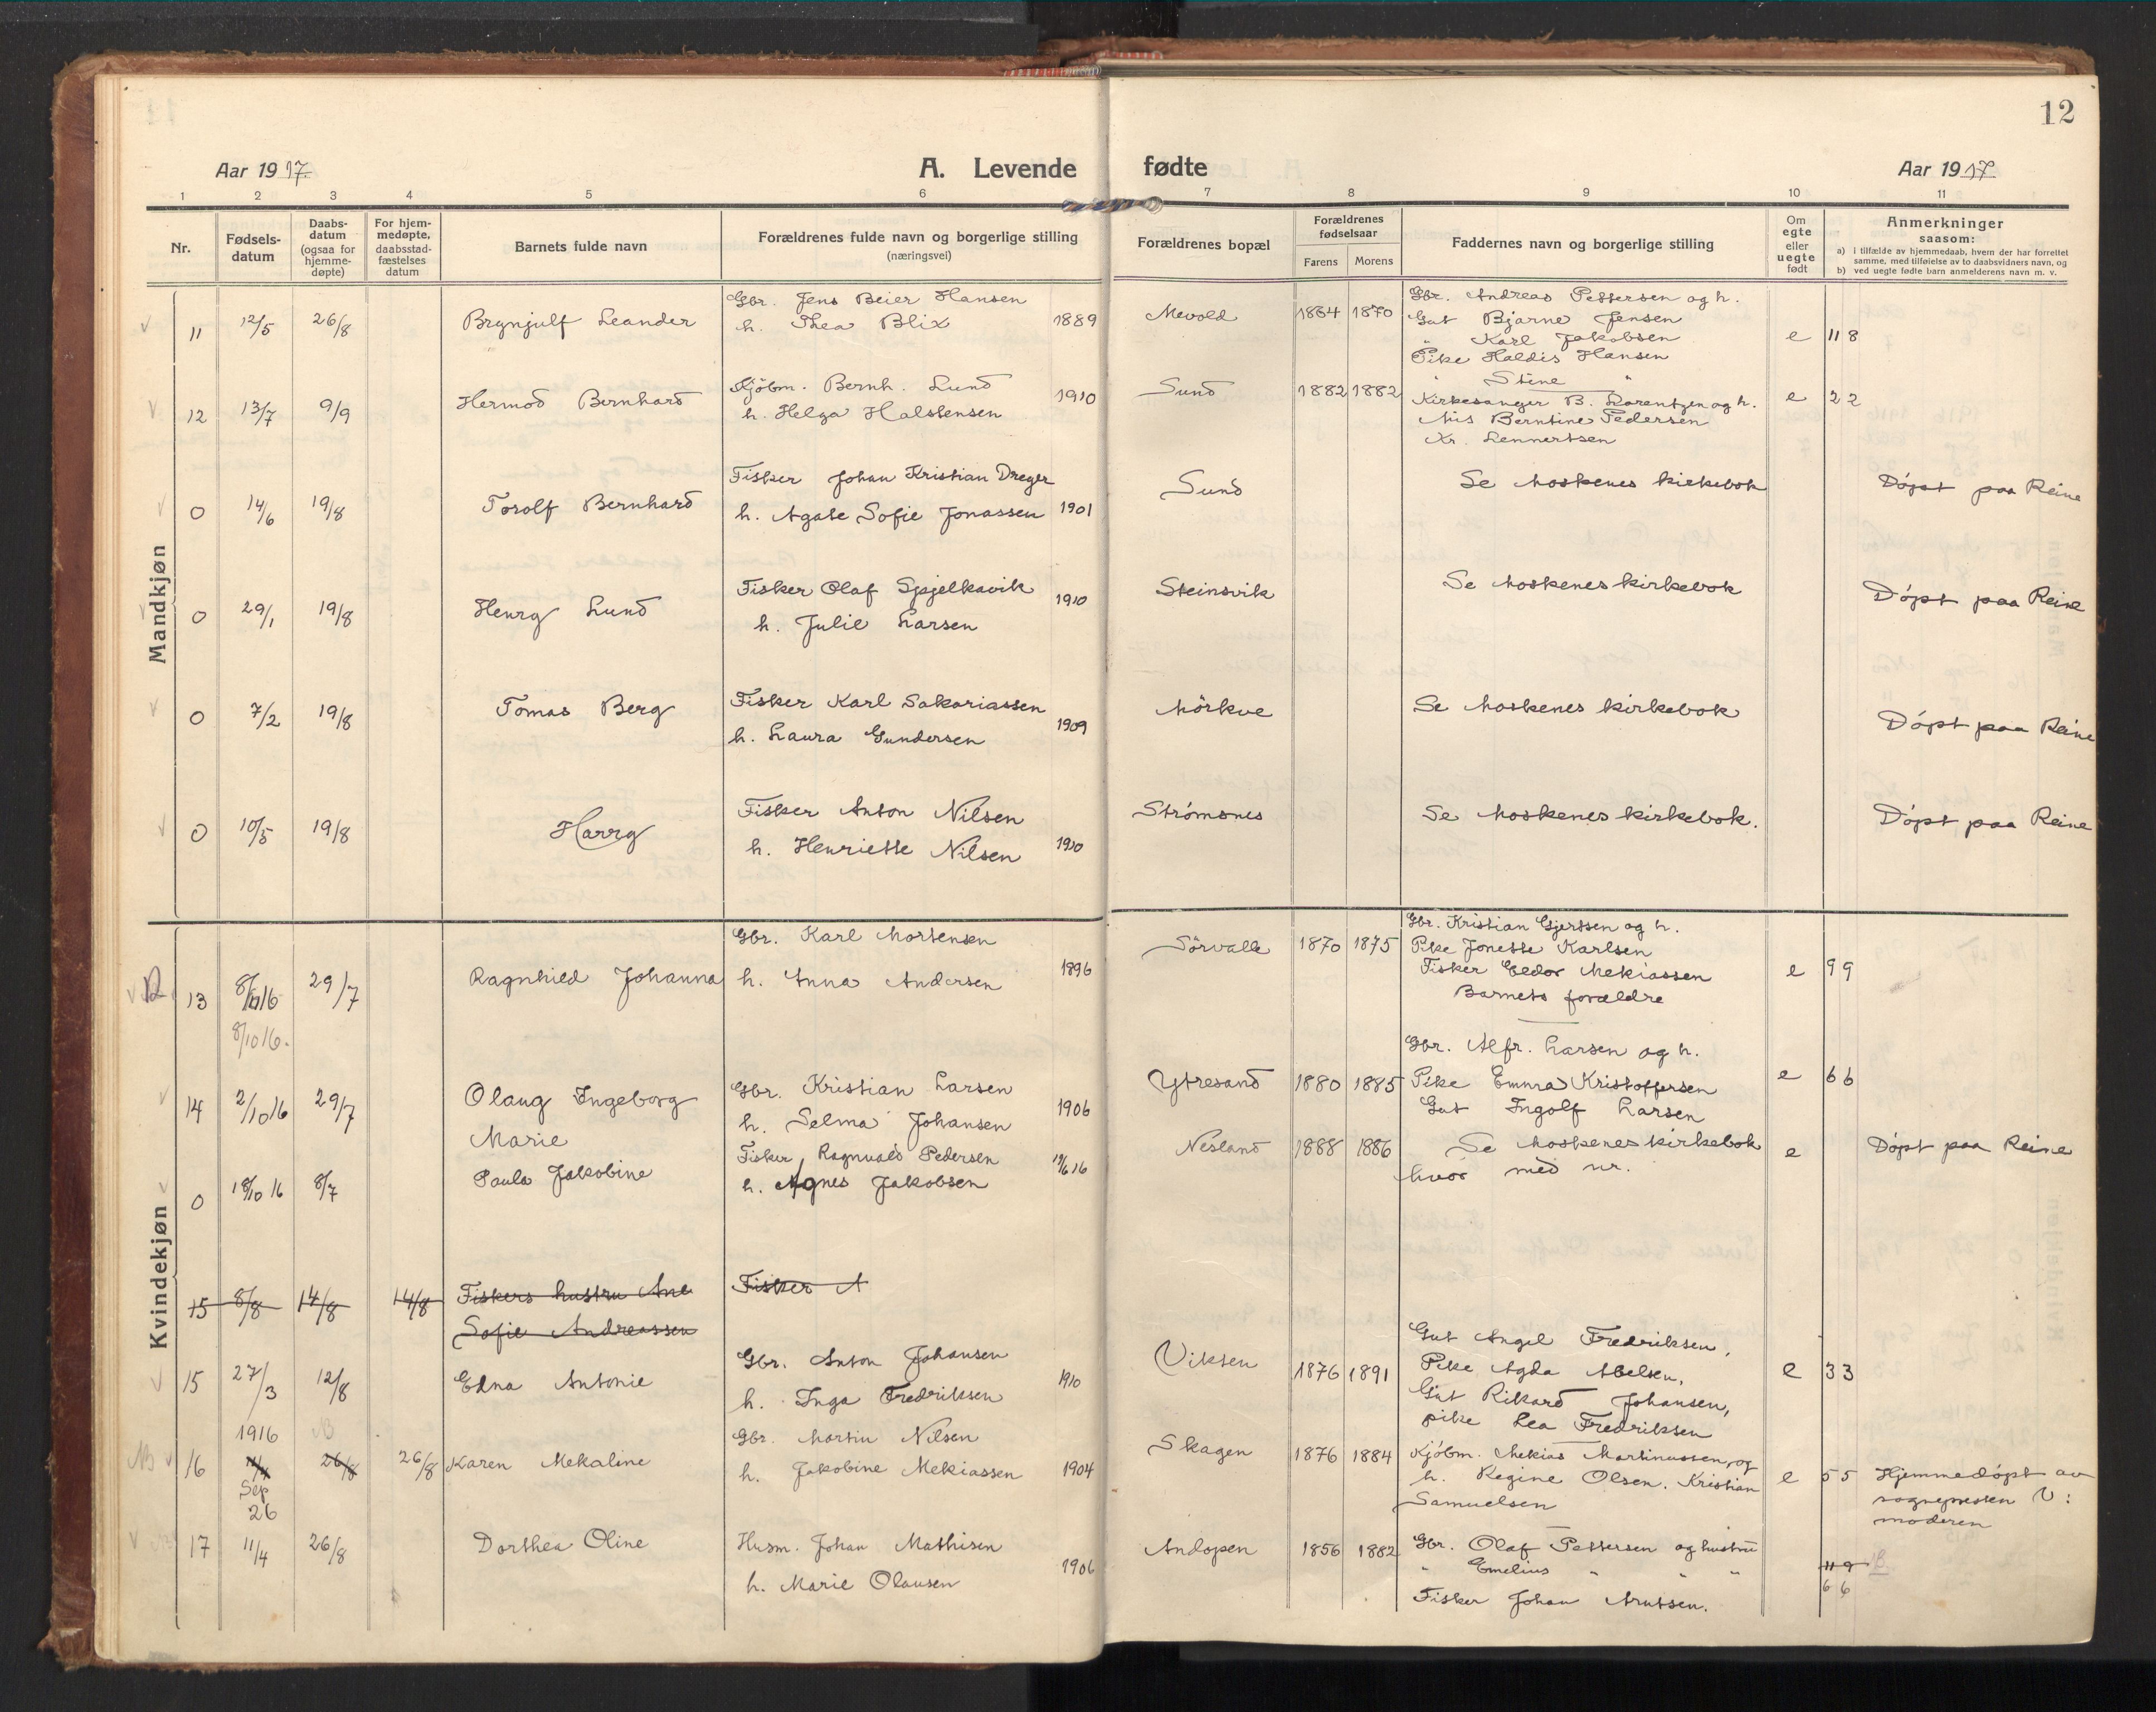 12
Aar 1917
A. Levende
fødte
Aar 1917
1 2 3 4 5 6 7 8 9 10 11
Nr.
Fødsels-
datum
Daabs-
datum
(ogsaa for
hjemme-
døpte)
For hjem-
medøpte,
daabsstad-
fæstelses
datum
Barnets fulde navn
Forældrenes fulde navn og borgerlige stilling
(næringsvei)
Forældrenes bopæl
Forældrenes
fødselsaar
Farens
Morens
Faddernes navn og borgerlige stilling
Om
egte
eller
uegte
født
Anmerkninger
saasom:
a) i tilfælde av hjemmedaab, hvem der har forrettet
samme, med tilføielse av to daabsvidners navn, og
b) ved uegte fødte barn anmelderens navn m. v.
Mandkjøn
11 12/5 26/8 Brynjulf Leander
Gbr. Jens Beier Hansen
h. Thea Blix 1889
Mevold 1864 1870
Gbr. Andreas Pettersen og h.
Gut Bjarne Jensen
" Karl Jakobsen
Pike Haldis Hansen
" Stine "
e 11 8
12 13/7 9/9 Hermod Bernhard
Kjöbm. Bernh. Lund
h. Helga Halstensen 1910
Sund 1882 1882
Kirkesanger B. Lorentzen og h.
Frk Berntine Pedersen
Kr. Lennertsen
e 2 2
0 14/6 19/8 Torolf Bernhard
Fisker Johan Kristian Dreyer
h. Agate Sofie Jonassen 1901
Sund
Se Moskenes kirkebok
Döpt paa Reine
0 29/1 19/8 Henry Lund
Fisker Olaf Spjelkavik
h. Julie Larsen 1910
Steinsvik
Se Moskenes kirkebok
Döpt paa Reine
0 7/2 19/8 Tomas Berg
Fisker Karl Sakariassen
h. Laura Gundersen 1909
Mörkve
Se Moskenes kirkebok
Döpt paa Reine
0 10/5 19/8 Harry
Fisker Anton Nilsen
h. Henriette Nilsen 1910
Strömsnes
Se Moskenes kirkebok.
Döpt paa Reine
Kvindekjøn
13 8/10 16 29/7 Ragnhild Johanna
8/10 16.
Gbr. Karl Mortensen
h. Anna Andersen 1896
Sörvalle 1870 1875
Gbr. Kristian Gjertsen og h.
Pike Jonette Karlsen
Fisker Eedor Mekiassen
Barnets forældre
e 9 9
14 2/10 16 29/7 Olaug Ingeborg
Marie
Gbr. Kristian Larsen
h. Selma Johansen 1906
Ytresand 1880 1885
Gbr. Alfr. Larsen og h.
Pike Emma Kristoffersen
Gut Ingolf Larsen
e 6 6
0 18/10 16 8/7 Paula Jakobine
Fisker Ragnvald Pedersen
h. Agnes Jakobsen 19/6 16
Nesland 1888 1886
Se Moskenes kirkebok
hvor med nr.
e
Döpt paa Reine
15 8/8 14/8 14/8 Fiskers hustru Ane
Sofie Andreassen
Fisker A
15 27/3 12/8 Edna Antonie
Gbr. Anton Johansen
h. Inga Fredriksen 1910
Viksen 1876 1891
Gut Angel Fredriksen,
Pike Agda Abelsen,
Gut Rikard Johansen,
pike Lea Fredriksen
e 3 3
NB 16 1916 11/4 Sep 26 26/8 26/8 Karen Mekaline
Gbr. Martin Nilsen
h. Jakobine Mekiassen 1904
Skagen 1876 1884
Kjöbm. Mekias Martinussen, og
h. Regine Olsen. Kristian
Samuelsen
e 5 5
Hjemmedöpt av
sognepresten V:
moderen
17 11/4 26/8 Dorthea Oline
Husm. Johan Mathisen
h. Marie Olausen 1906
Andopen 1856 1882
Gbr. Olaf Pettersen og hustru
" Emelius " " "
Fisker Johan Arntsen.
11 9
6 6